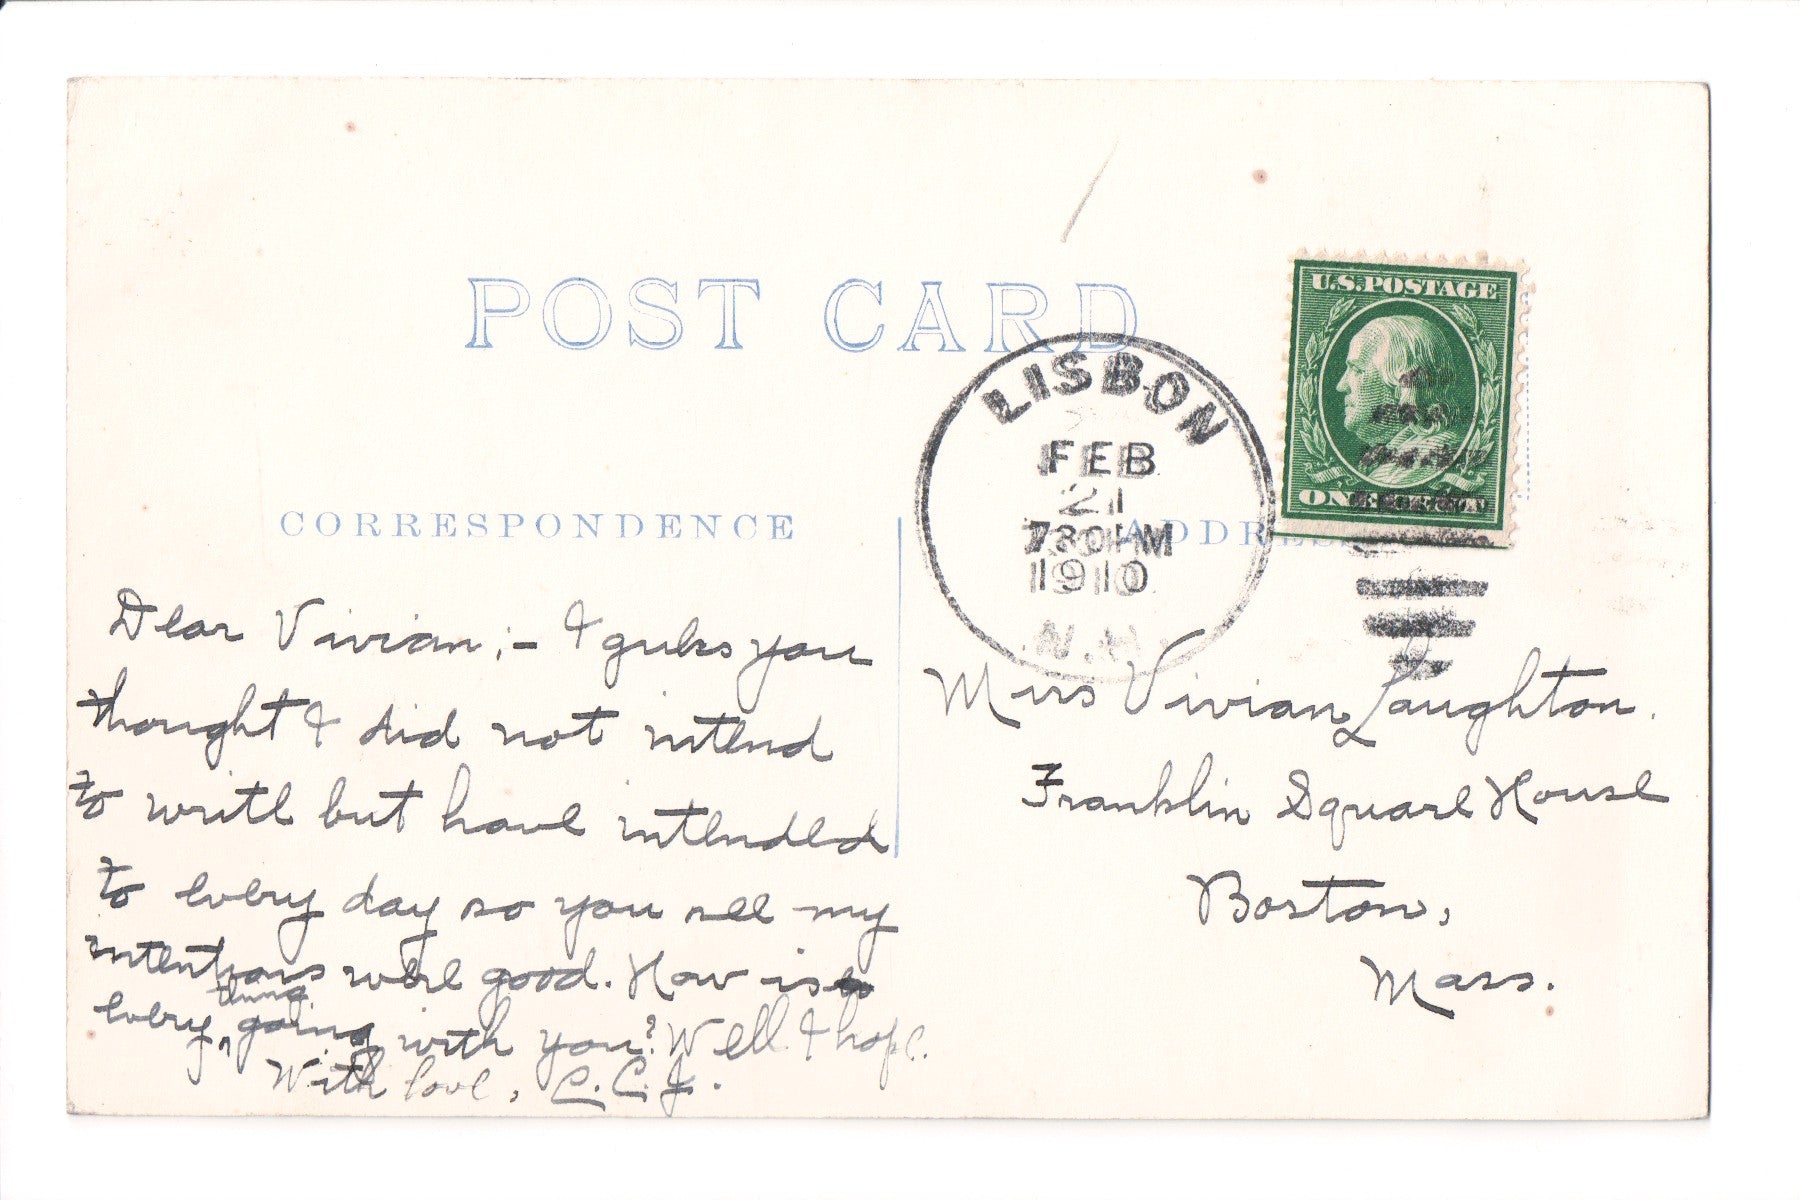 POST CARD
U.S. POSTAGE
LISBON
FEB
21
730PM
1910
N.H.
CORRESPONDENCE
ADDRESS
Dear Vivian;- I guess you
thought I did not intend
to write but have intended
to every day so you see my
intentions were good. How is
every thing going with you? Well I hope.
With love, C.C.J.
Miss Vivian Laughton.
Franklin Square House
Boston,
Mass.